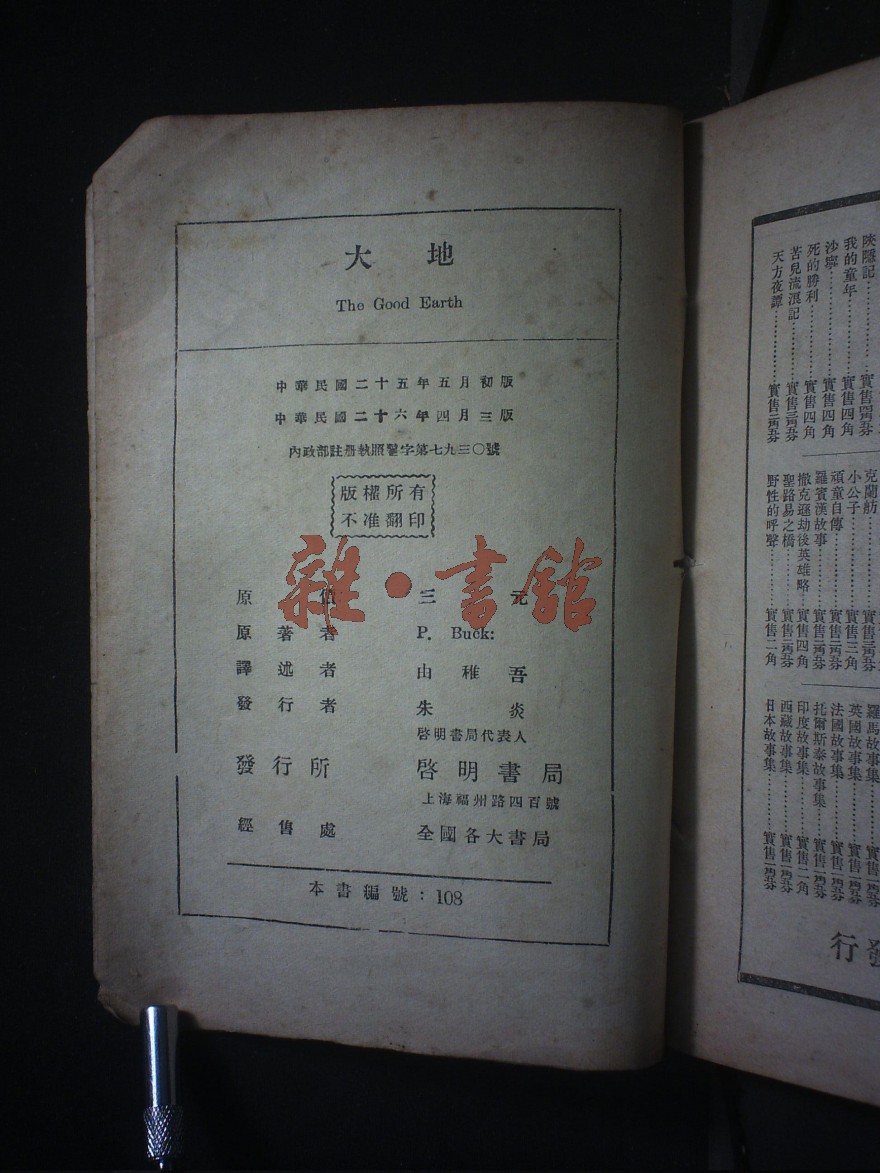 大地
The Good Earth
中華民國二十五年五月初版
中華民國二十六年四月三版
內政部註册執照警字第七九三〇號
版權所有
不准翻印
雜·書館
原價 三元
原著者 P. Buck:
譯述者 由稚吾
發行者 朱炎
啓明書局代表人
發行所 啓明書局
上海福州路四百號
經售處 全國各大書局
本書編號：108
陜隱記
我的童年…………實售四角
沙寧…………實售四角
死的勝利…………實售四角
苦兒流浪記…………
天方夜譚…………
克蘭舫
小公子…………實售三角
頑童自傳…………
羅賓漢故事…………
撒克遜劫後英雄略…………實售四角
聖路易之橋…………
野性的呼聲…………實售二角
羅馬故事集
英國故事集…………
法國故事集…………
托爾斯泰故事集…………
印度故事集…………實售二角
西藏故事集…………
日本故事集…………
發行